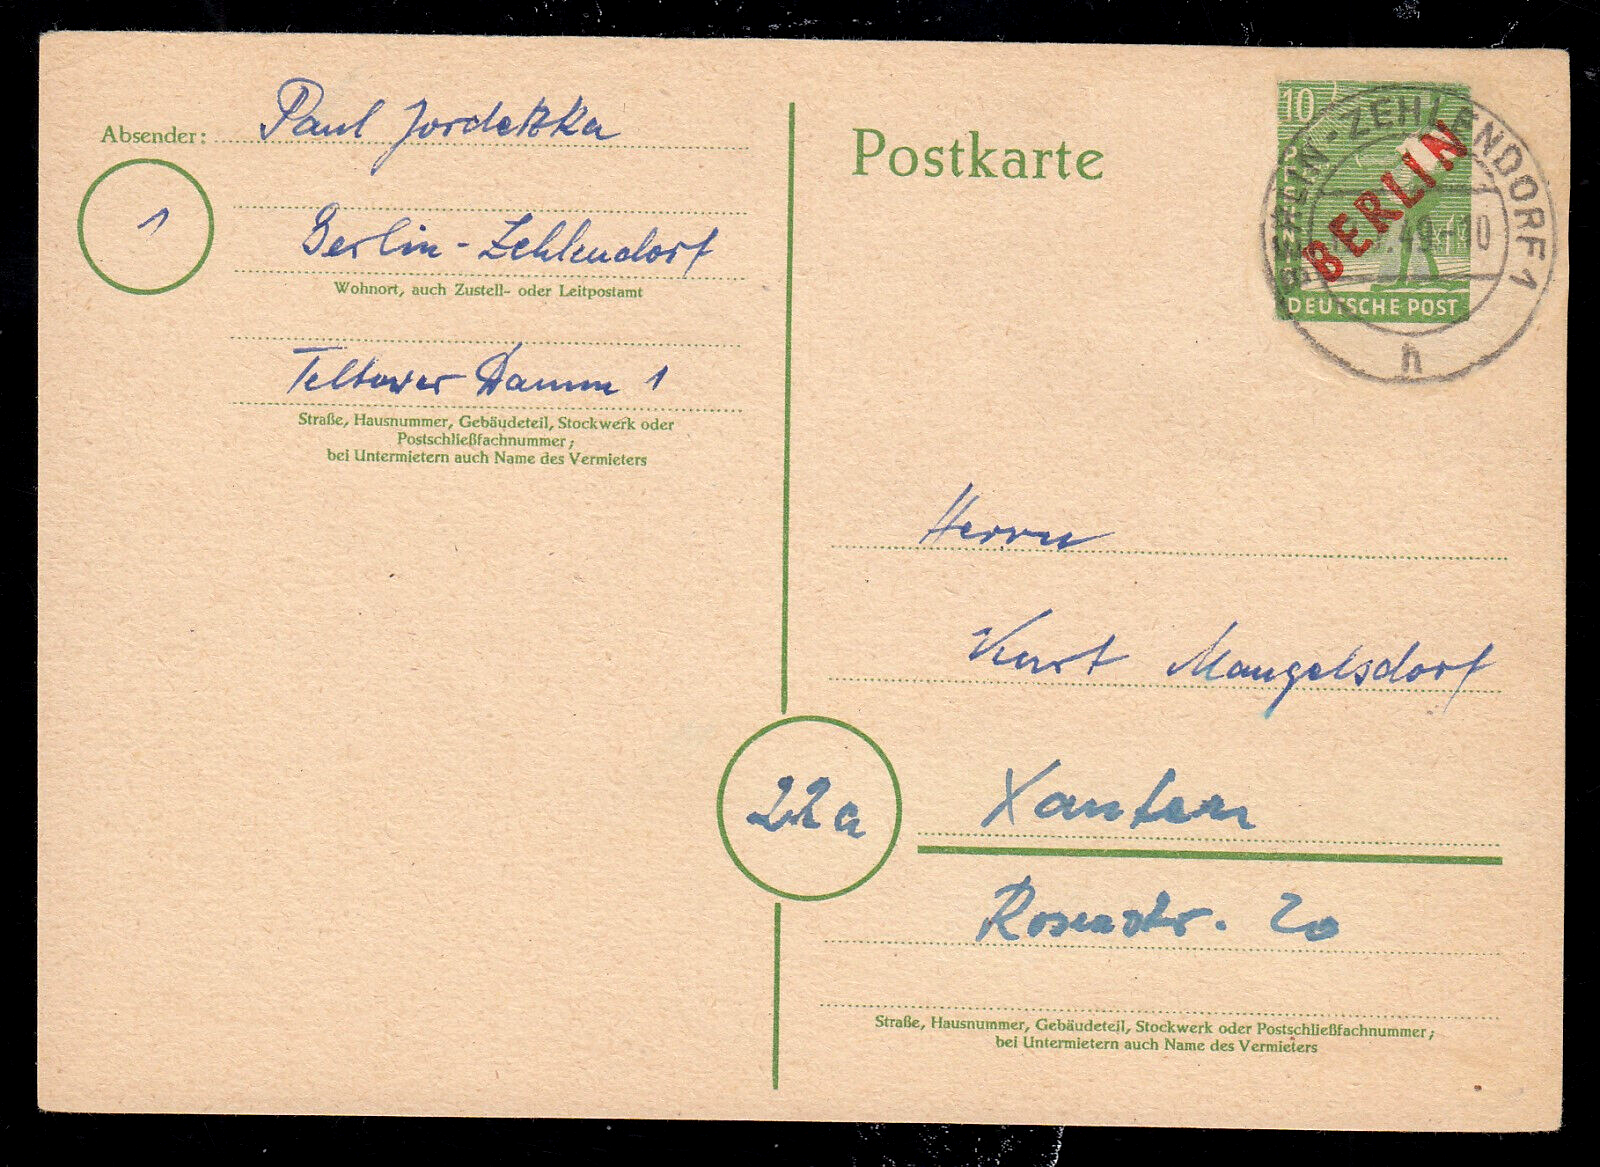 Absender: Paul Jordetzka
1
Berlin-Zehlendorf
Wohnort, auch Zustell- oder Leitpostamt
Teltower Damm 1
Straße, Hausnummer, Gebäudeteil, Stockwerk oder
Postschließfachnummer;
bei Untermietern auch Name des Vermieters
Postkarte
10
BERLIN
DEUTSCHE POST
BERLIN-ZEHLENDORF 1
49
h
Herrn
Kurt Mangelsdorf
22a
Xanten
Rosenstr. 20
Straße, Hausnummer, Gebäudeteil, Stockwerk oder Postschließfachnummer;
bei Untermietern auch Name des Vermieters